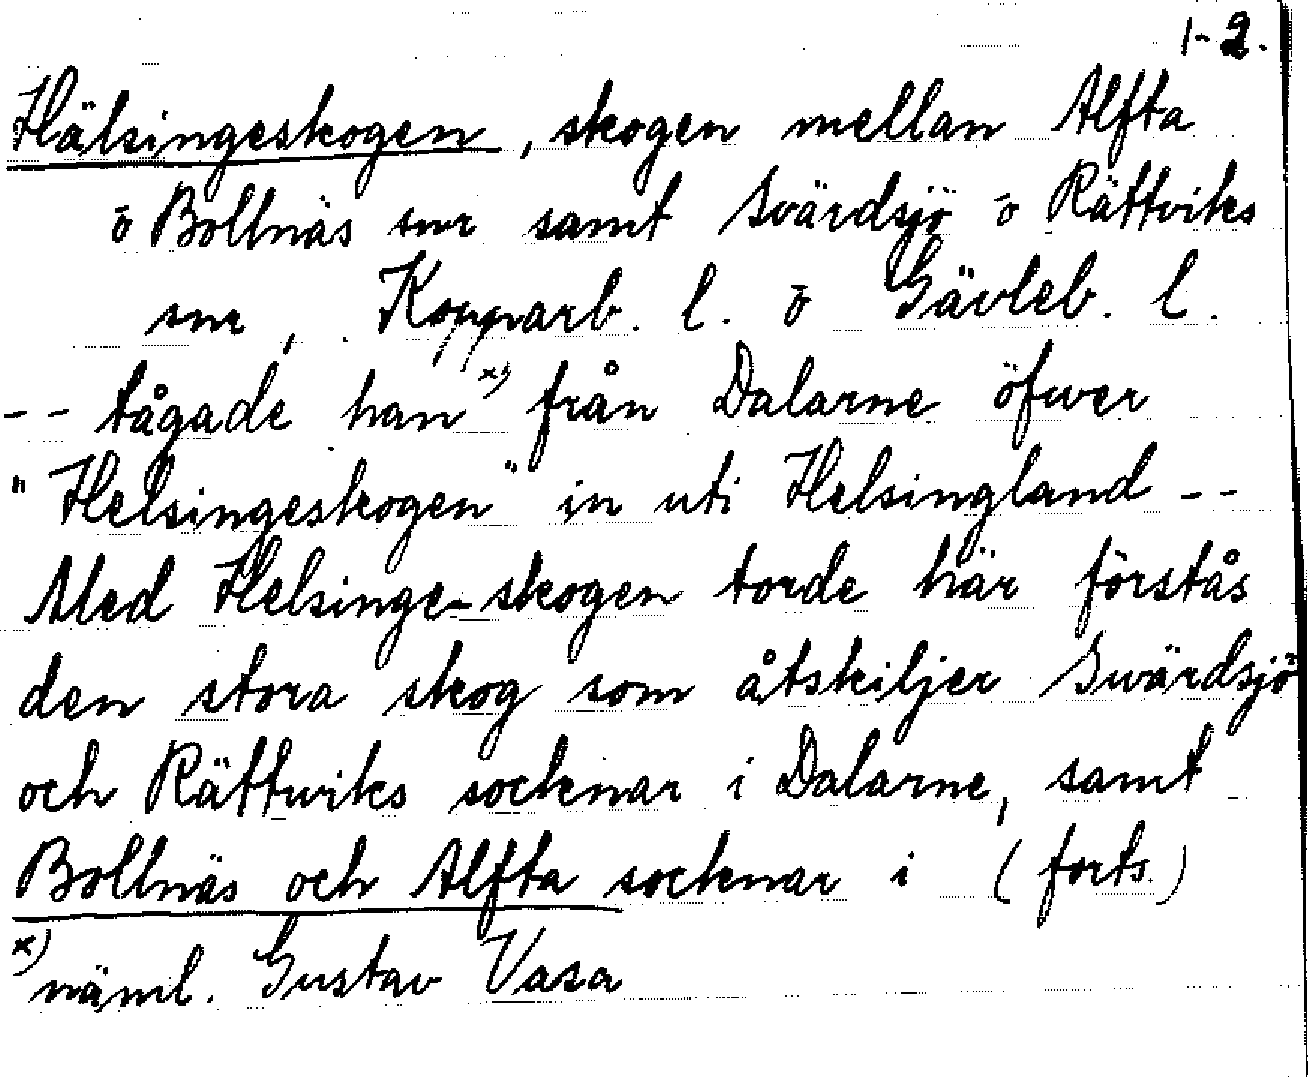 1-2.
Hälsingeskogen, skogen mellan Alfta
ō Bollnäs snr samt Svärdsjö ō Rättviks
snr, Kopparb. l. ō Gävleb. l.
-- tågade han x) från Dalarne öfwer
"Helsingeskogen" in uti Helsingland --
Med Helsinge-skogen torde här förstås
den stora skog som åtskiljer Swärdsjö
och Rättwiks socknar i Dalarne, samt
Bollnäs och Alfta socknar i (forts.)
x) näml. Gustav Vasa